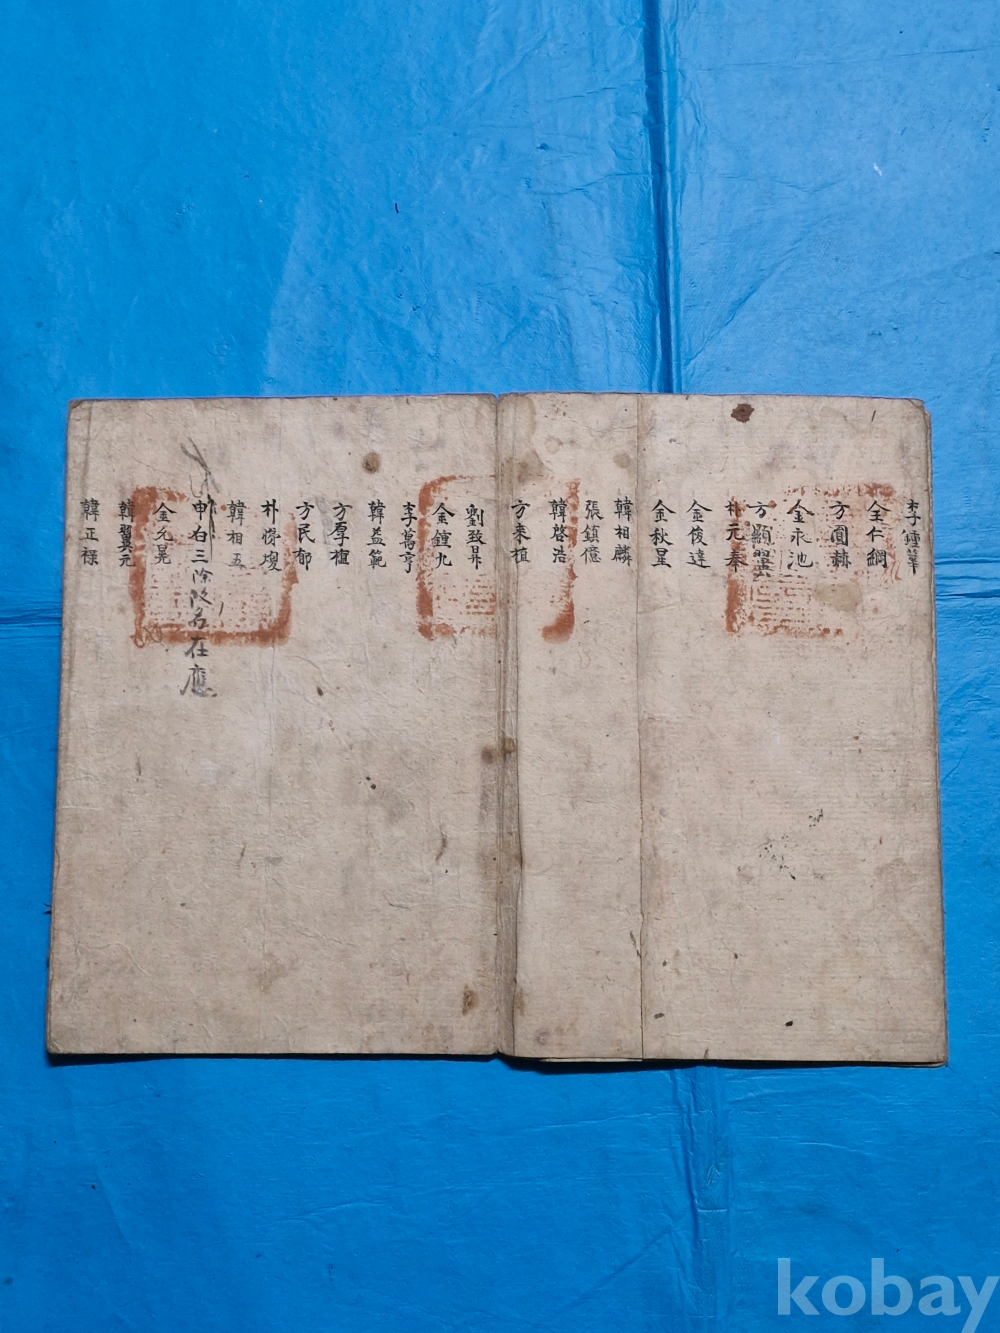 李鍾華
全仁綱
方圓赫
金永池
方顯翼
朴元奉
金俊達
金秋星
韓相麟
張鎮億
韓啓浩
方来植
劉致昇
金鍾九
李萬亨
韓益範
方厚植
方民郁
朴俊燮
韓相五
申右三除改名在應
金允晃
韓翼元
韓正禄
kobay